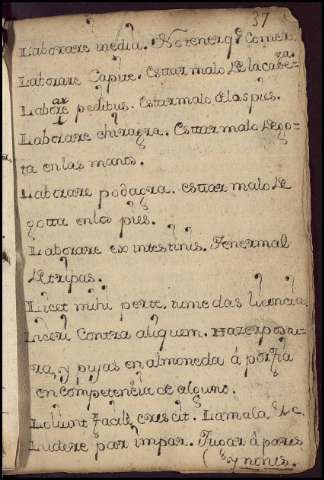 37
Laborare inedia. No tener q̃ Comer.
Laborare Capite. Estar malo de la cabe-
za.
Laborare pedibus. Estar malo de los pies.
Laborare chiragra. Estar malo de go-
ta en las manos.
Laborare podagra. estar malo de
gotta en los pies.
Laborare ex intestinis. Tener mal
de tripas.
Licet mihi per te. tu me das licencia.
Liceri Contra aliquem. Hazer postu-
ra, y pujas en almoneda á porfia
en competencia de alguno.
Lolium facile crescit. La mala &c.
Ludere par impar. Jugar á pares
(y nones.